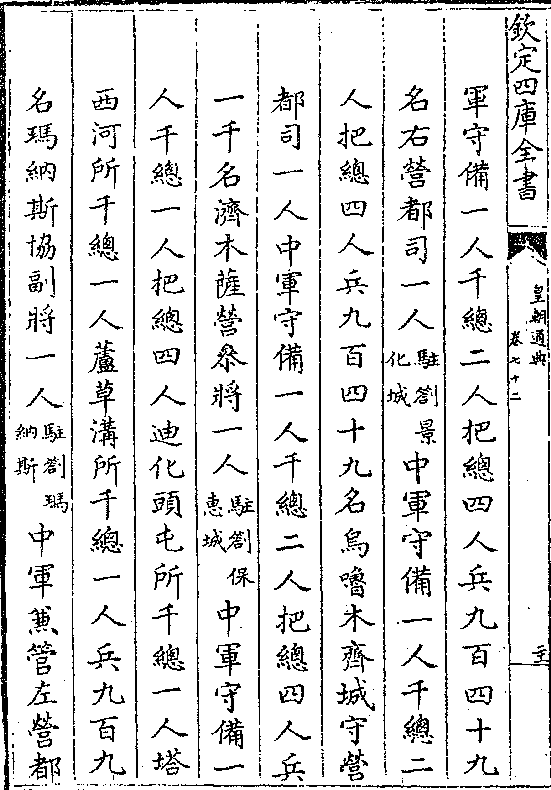 欽定四庫全書
皇朝通典
卷七十二
軍守備一人千總二人把總四人兵九百四十九
名右營都司一人駐劄景化城中軍守備一人千總二
人把總四人兵九百四十九名烏嚕木齊城守營
都司一人中軍守備一人千總二人把總四人兵
一千名濟木薩營叅將一人駐劄保惠城中軍守備一
人千總一人把總四人迪化頭屯所千總一人塔
西河所千總一人蘆草溝所千總一人兵九百九
名瑪納斯協副將一人駐劄瑪納斯中軍兼管左營都